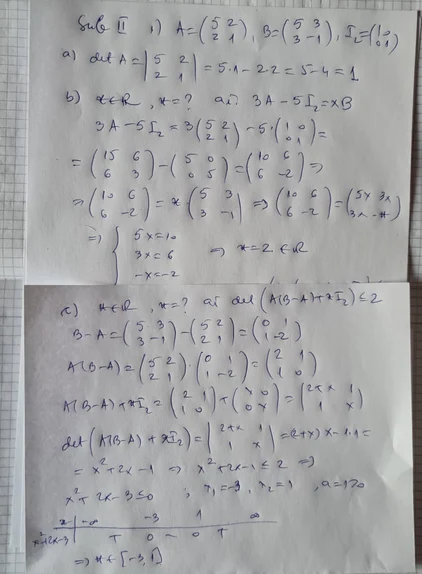 Sub II 1) A = (5 2 / 2 1), B = (5 3 / 3 -1), I₂ = (1 0 / 0 1)
a) det A = |5 2 / 2 1| = 5·1 - 2·2 = 5 - 4 = 1
b) x ∈ R, x = ? aî 3A - 5I₂ = xB
3A - 5I₂ = 3(5 2 / 2 1) - 5·(1 0 / 0 1) =
= (15 6 / 6 3) - (5 0 / 0 5) = (10 6 / 6 -2) ⇒
⇒ (10 6 / 6 -2) = x (5 3 / 3 -1) ⇒ (10 6 / 6 -2) = (5x 3x / 3x -x)
⇒ { 5x = 10
3x = 6 ⇒ x = 2 ∈ R
-x = -2
c) x ∈ R, x = ? aî det (A(B-A) + xI₂) ≤ 2
B-A = (5 3 / 3 -1) - (5 2 / 2 1) = (0 1 / 1 -2)
A(B-A) = (5 2 / 2 1) · (0 1 / 1 -2) = (2 1 / 1 0)
A(B-A) + xI₂ = (2 1 / 1 0) + (x 0 / 0 x) = (2+x 1 / 1 x)
det (A(B-A) + xI₂) = |2+x 1 / 1 x| = (2+x)x - 1·1 =
= x² + 2x - 1 ⇒ x² + 2x - 1 ≤ 2 ⇒
x² + 2x - 3 ≤ 0 ; x₁ = -3, x₂ = 1, a = 1 > 0
x -∞ -3 1 ∞
x²+2x-3 + 0 - 0 +
⇒ x ∈ [-3, 1]